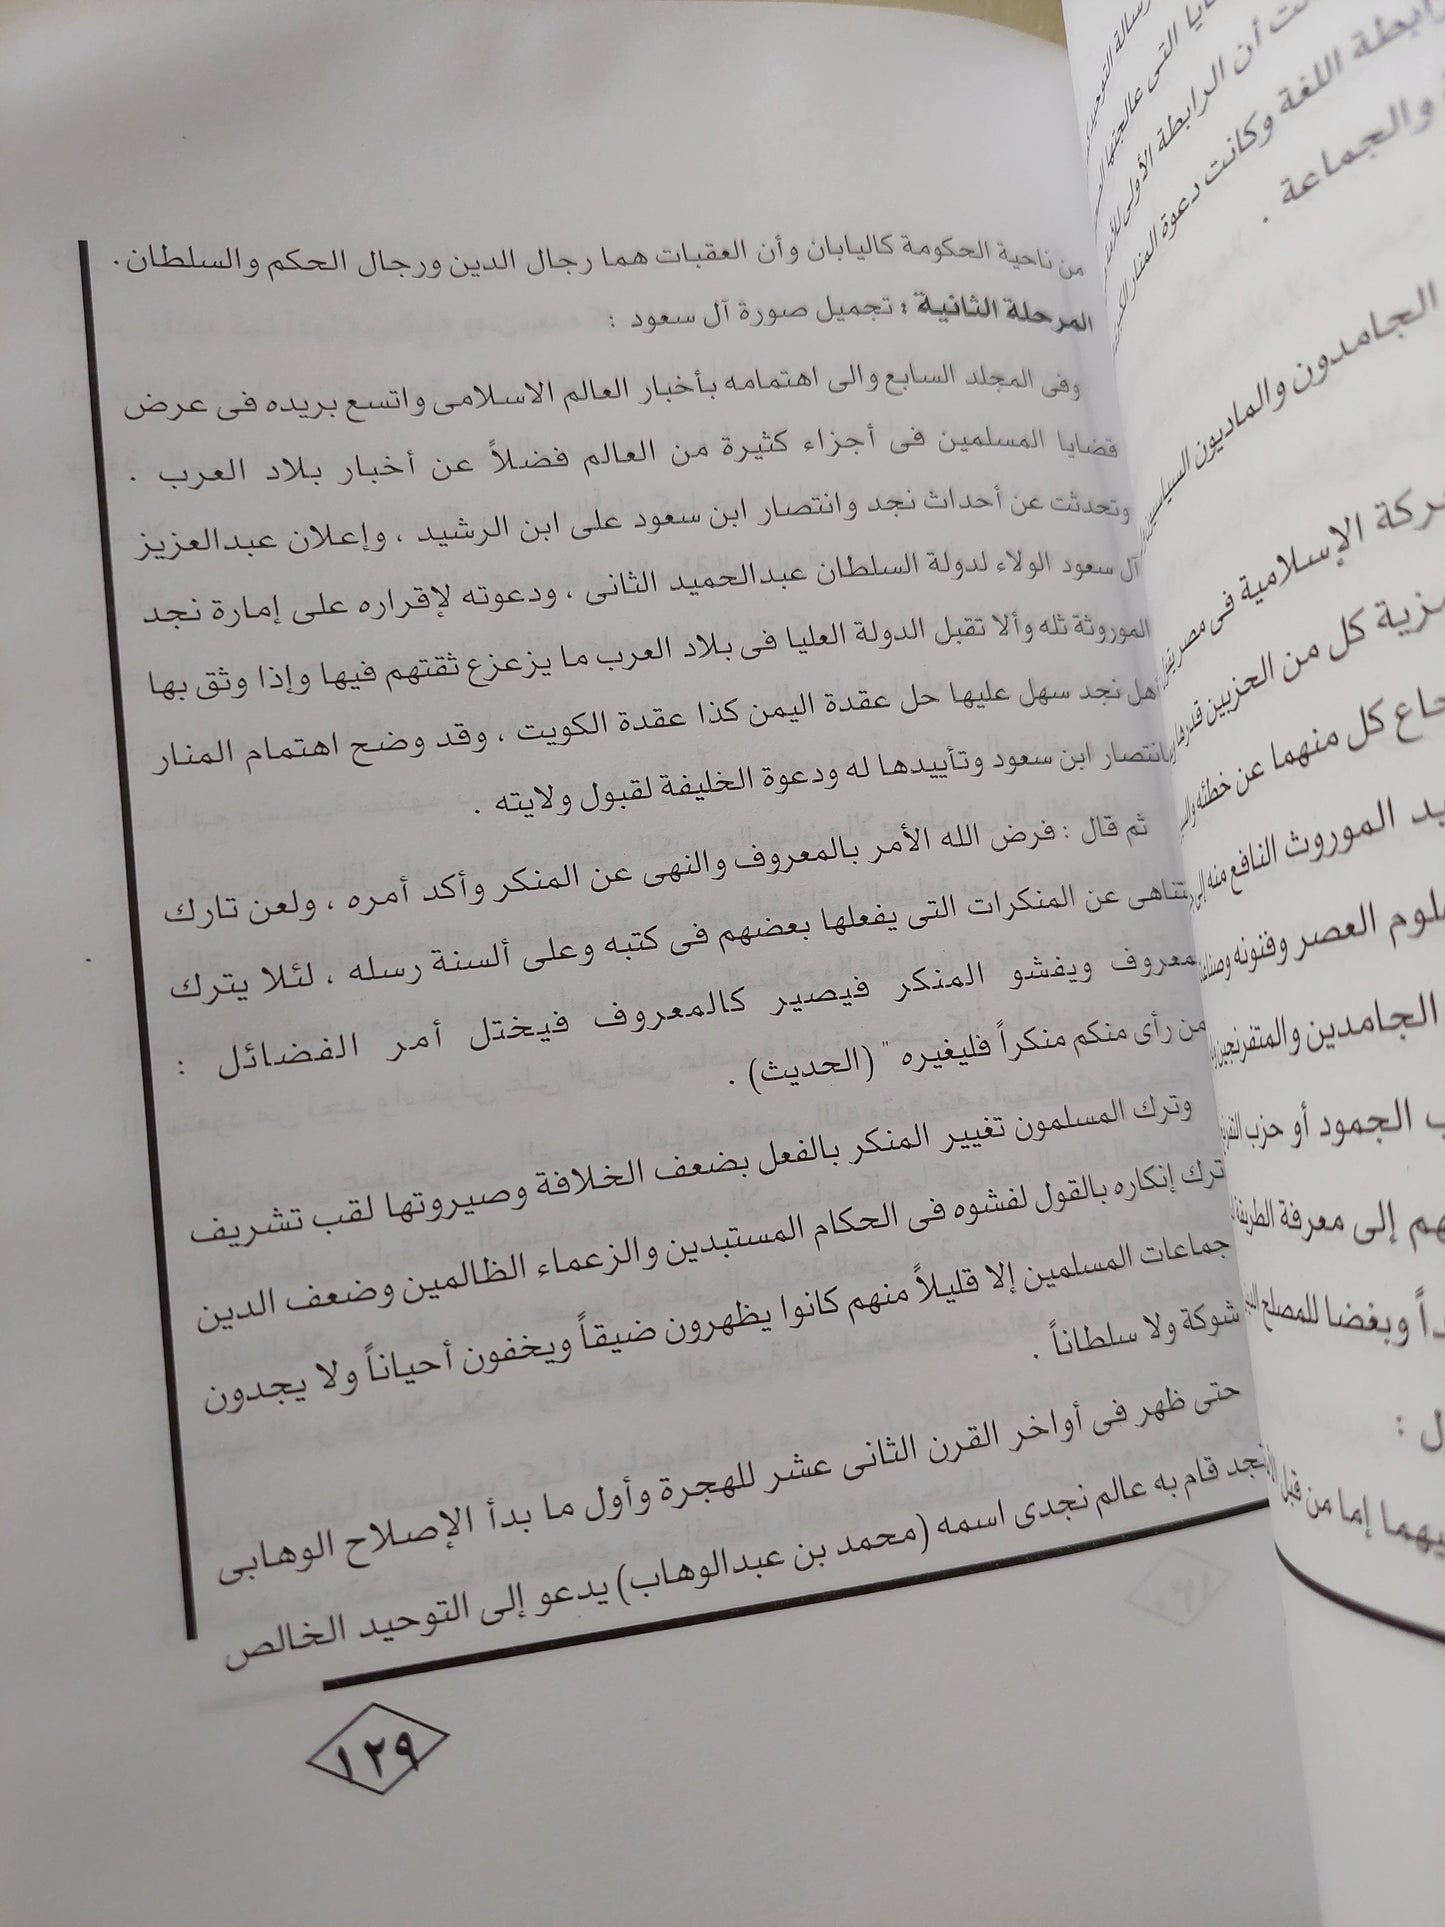 من ناحية الحكومة كاليابان وأن العقبات هما رجال الدين ورجال الحكم والسلطان.
المرحلة الثانية : تجميل صورة آل سعود :
وفى المجلد السابع والى اهتمامه بأخبار العالم الاسلامى واتسع بريده فى عرض
قضايا المسلمين فى أجزاء كثيرة من العالم فضلاً عن أخبار بلاد العرب .
وتحدثت عن أحداث نجد وانتصار ابن سعود على ابن الرشيد ، وإعلان عبدالعزيز
آل سعود الولاء لدولة السلطان عبدالحميد الثانى ، ودعوته لإقراره على إمارة نجد
الموروثة ثله وألا تقبل الدولة العليا فى بلاد العرب ما يزعزع ثقتهم فيها وإذا وثق بها
أهل نجد سهل عليها حل عقدة اليمن كذا عقدة الكويت ، وقد وضح اهتمام المنار
بانتصار ابن سعود وتأييدها له ودعوة الخليفة لقبول ولايته .
ثم قال : فرض الله الأمر بالمعروف والنهى عن المنكر وأكد أمره ، ولعن تارك
عن المنكرات التى يفعلها بعضهم فى كتبه وعلى ألسنة رسله ، لئلا يترك
ويفشو المنكر فيصير كالمعروف فيختل أمر الفضائل :
من رأى منكم منكراً فليغيره " (الحديث) .
وترك المسلمون تغيير المنكر بالفعل بضعف الخلافة وصيروتها لقب تشريف
ترك إنكاره بالقول لفشوه فى الحكام المستبدين والزعماء الظالمين وضعف الدين
جماعات المسلمين إلا قليلاً منهم كانوا يظهرون ضيقاً ويخفون أحياناً ولا يجدون
شوكة ولا سلطاناً .
حتى ظهر فى أواخر القرن الثانى عشر للهجرة وأول ما بدأ الإصلاح الوهابى
نجد قام به عالم نجدى اسمه (محمد بن عبدالوهاب) يدعو إلى التوحيد الخالص
١٢٩
رسالة التوحيد
التى عالجتها
أن الرابطة الأولى
رابطة اللغة وكانت دعوة المنار
والجماعة .
الجامدون والماديون
الإسلامية فى مصر
كل من الحزبين
كل منهما عن خطئه
الموروث النافع منه
العصر وفنونه
الجامدين والمتفرنجين
الجمود أو حزب
إلى معرفة
وبغضا للمصلح
إما من قبل